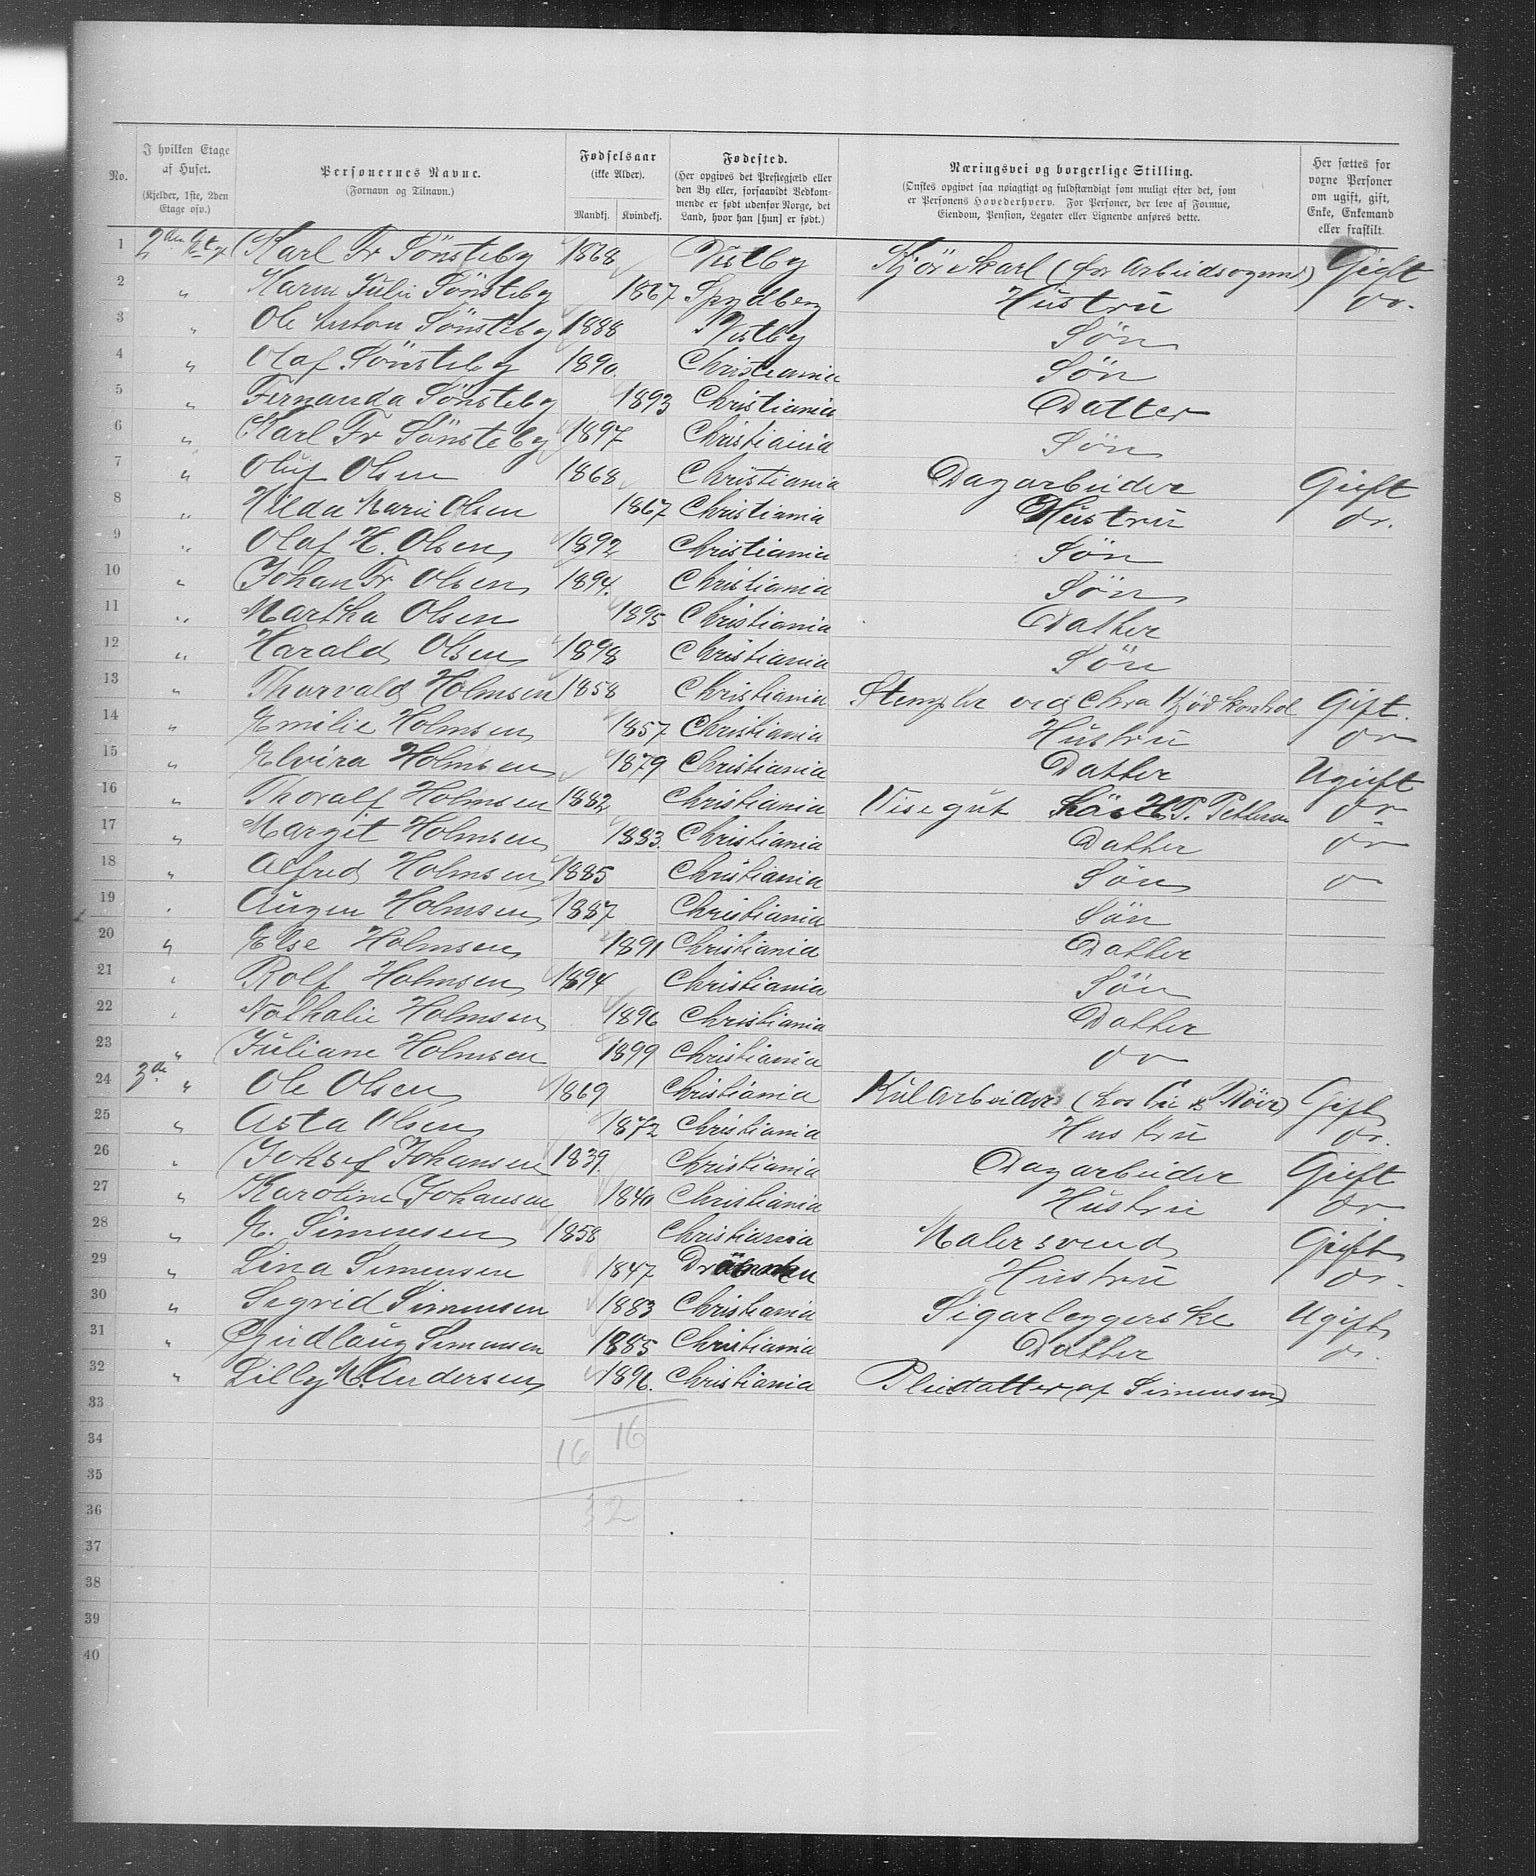 No.
I hvilken Etage af Huset.
(Kjelder, 1ste, 2den Etage osv.)
Personernes Navne.
(Fornavn og Tilnavn.)
Fødselsaar
(ikke Alder).
Mandkj. Kvindekj.
Fødested.
(Her opgives det Prestegjæld eller den By eller, forsaavidt Vedkommende er født udenfor Norge, det Land, hvor han [hun] er født.)
Næringsvei og borgerlige Stilling.
(Ønskes opgivet saa nøiagtigt og fuldstændigt som muligt efter det, som er Personens Hovederhverv. For Personer, der leve af Formue, Eiendom, Pension, Legater eller Lignende anføres dette.
Her sættes for voxne Personer om ugift, gift, Enke, Enkemand eller fraskilt.
1 2den Etg Karl Fr Sönsteby 1868 Vestby Kjörekarl (for Arbeidsvogne) Gift
2 " Karen Julie Sönsteby 1867 Spydberg Hüstrü do.
3 " Ole Anton Sönsteby 1888 Vestby Sön
4 " Olaf Sönsteby 1890. Christiania Sön
5 " Fernanda Sönsteby 1893 Christiania Datter
6 " Karl Fr Sönsteby 1897 Christiania Sön
7 " Oluf Olsen 1868 Christiania Dagarbeider Gift
8 " Hilda Marie Olsen 1867 Christiania Hüstrü do.
9 " Olaf H. Olsen 1892 Christiania Sön
10 " Johan Fr Olsen 1894. Christiania Sön
11 " Martha Olsen 1895 Christiania Datter
12 " Harald Olsen 1898 Christiania Sön
13 " Thorvald Holmsen 1858 Christiania Stempler ved Chra Kjödkontrol Gift.
14 " Emilie Holmsen 1857 Christiania Hüstrü do
15 " Elvira Holmsen 1879 Christiania Datter Ugift
16 " Thoralf Holmsen 1882 Christiania Visegut H. P. Pettersen do
17 " Margit Holmsen 1883. Christiania Datter do
18 " Alfred Holmsen 1885 Christiania Sön do
19 " Augen Holmsen 1887 Christiania Sön
20 " Else Holmsen 1891 Christiania Datter
21 " Rolf Holmsen 1894 Christiania Sön
22 " Nathalie Holmsen 1896 Christiania Datter
23 " Juliane Holmsen 1899 Christiania do
24 3de " Ole Olsen 1869 Christiania Külarbeider Gift
25 " Asta Olsen 1872 Christiania Hustrü do.
26 " Johsef Johansen 1839. Christiania Dagarbeider Gift
27 " Karoline Johansen 1840 Christiania Hustrü do.
28 " Simensen 1858 Christiania Malersvend Gift
29 " Lina Simensen 1847 Drammen Hustrü do.
30 " Sigrid Simensen 1883 Christiania Sigarleggerske Ugift
31 " Gudlaug Simensen 1885 Christiania Datter do.
32 " Lilly M. Andersen 1896. Christiania Pleiedatter af Simensen
33
34 16 16
35
36 32
37
38
39
40